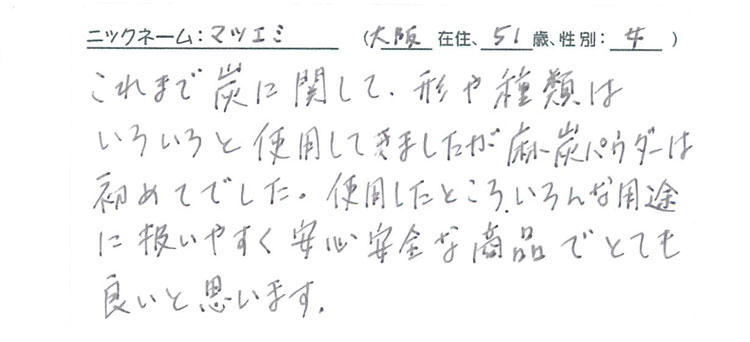 ニックネーム：マツエミ （大阪 在住、51 歳、性別：女 ）
これまで炭に関して、形や種類は
いろいろと使用してきましたが麻炭パウダーは
初めてでした。使用したところ、いろんな用途
に扱いやすく安心安全な商品でとても
良いと思います。